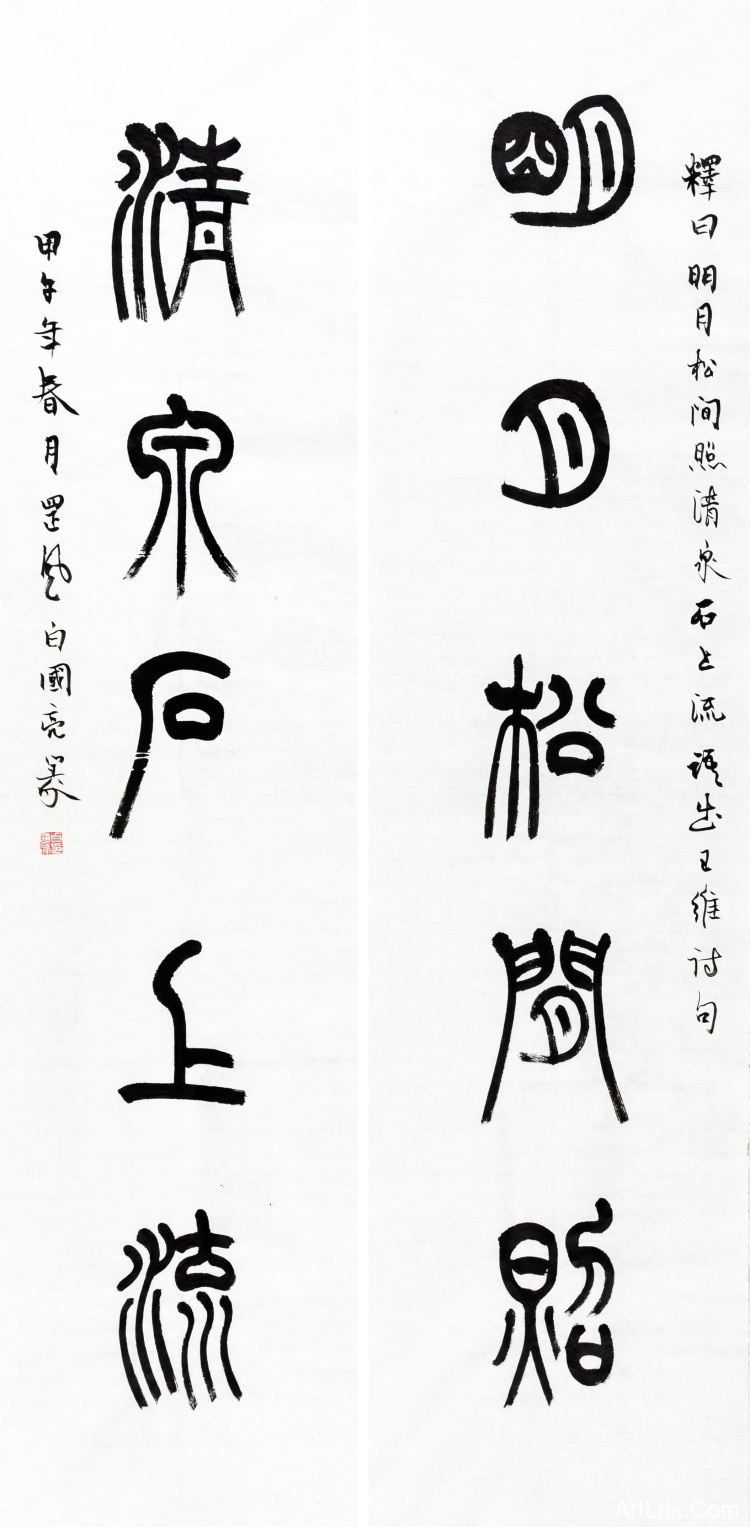 釋曰明月松间照清泉石上流語出王維诗句
明月松間照
清泉石上流
甲午年春月罡风白國亮篆
ArtLnk.Com